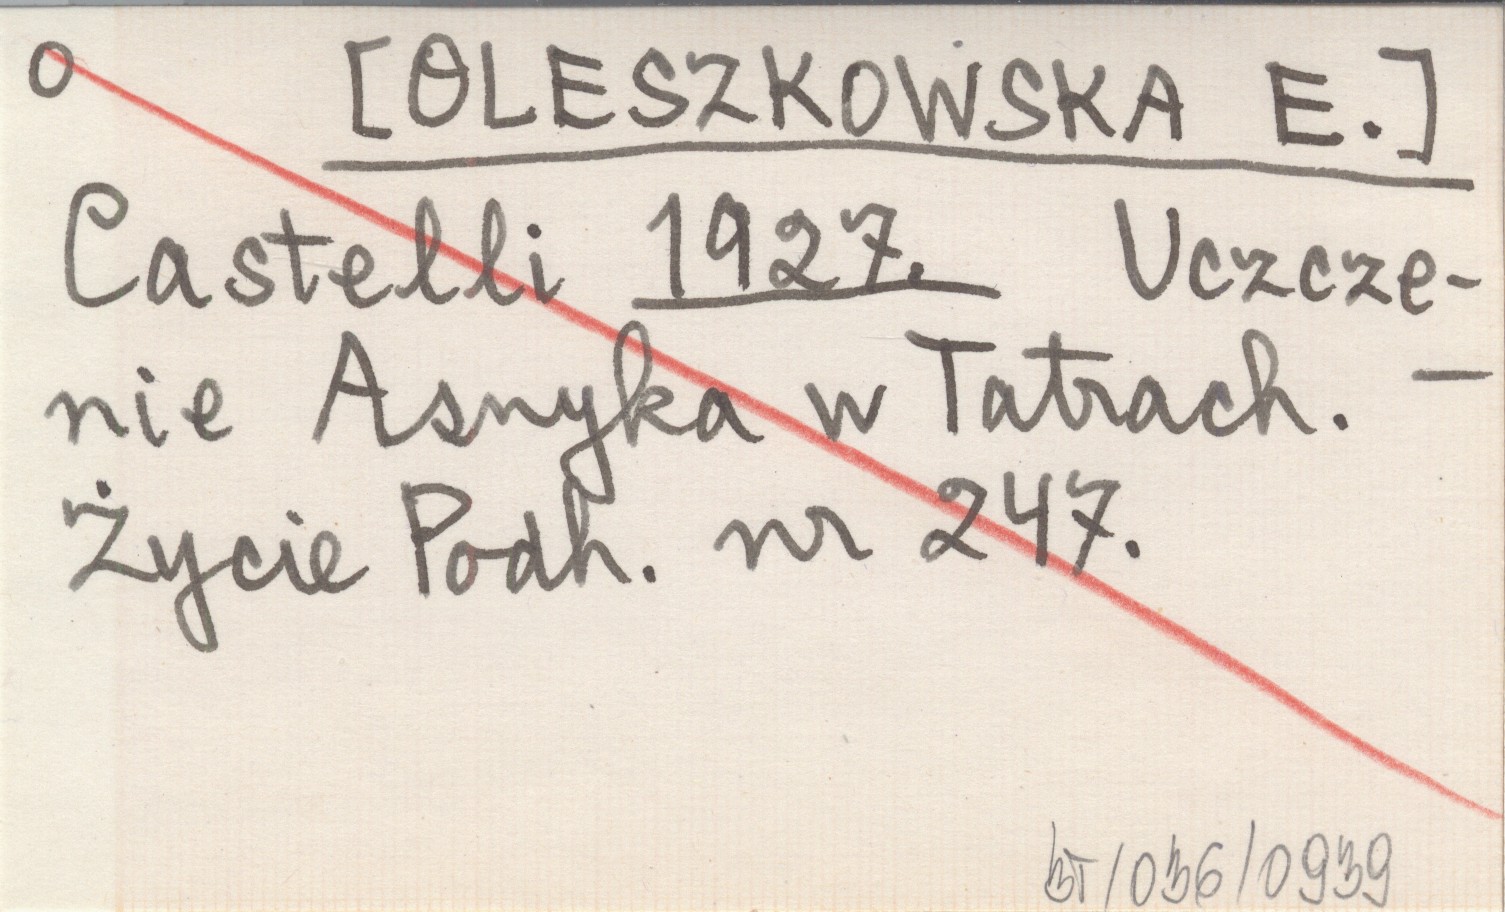 O [OLESZKOWSKA E.]
Castelli 1927. Uczcze-
nie Asnyka w Tatrach. –
Życie Podh. nr 247.
BT/036/0939